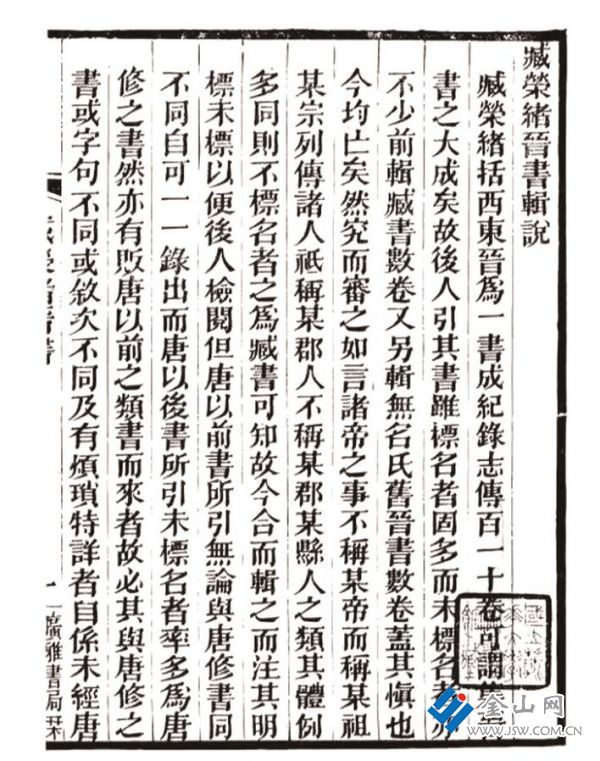 臧榮緒晉書輯說
臧榮緒括西東晉爲一書成紀錄志傳百一十卷可謂
書之大成矣故後人引其書雖標名者固多而未標名
不少前輯臧書數卷又另輯無名氏舊晉書數卷蓋其愼也
今均亡矣然究而審之如言諸帝之事不稱某帝而稱某祖
某宗列傳諸人祗稱某郡人不稱某郡某縣人之類其體例
多同則不標名者之爲臧書可知故今合而輯之而注其明
標未標以便後人檢閱但唐以前書所引無論與唐修書同
不同自可一一錄出而唐以後書所引未標名者率多爲唐
修之書然亦有敗唐以前之類書而來者故必其與唐修之
書或字句不同或敘次不同及有煩瑣特詳者自係未經唐
一
廣雅書局栞
金山网
www.jsw.com.cn